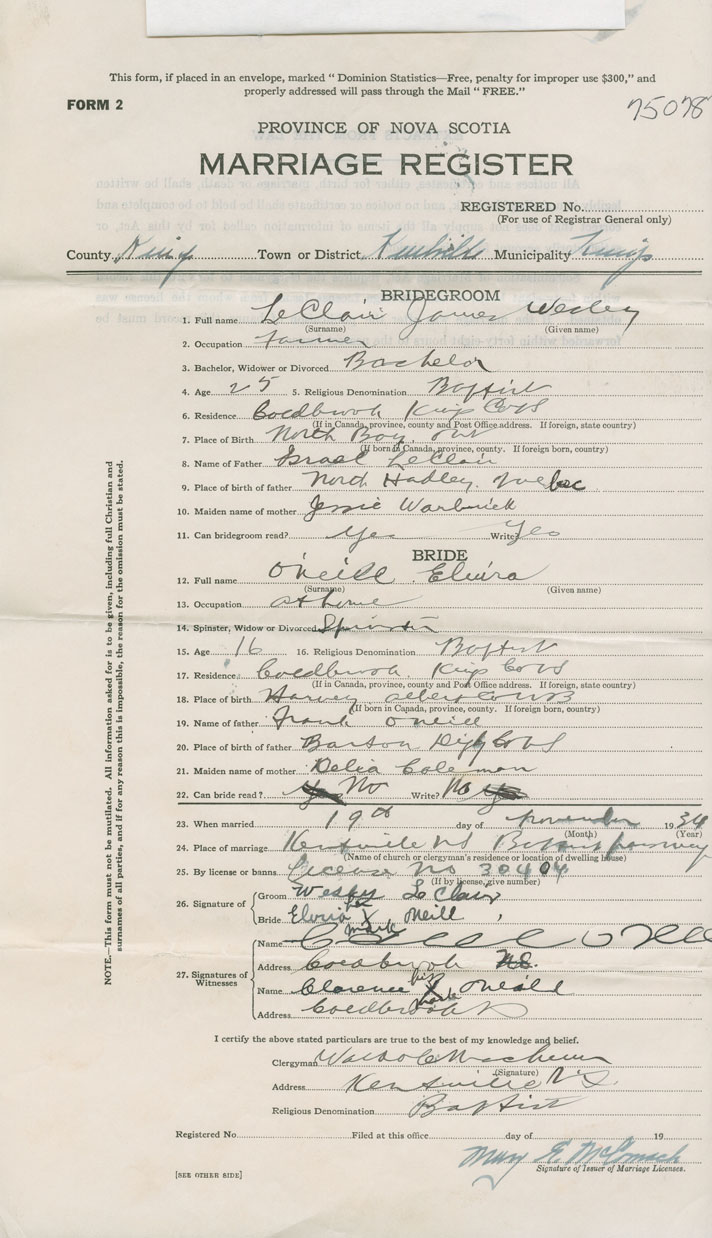 This form, if placed in an envelope, marked " Dominion Statistics—Free, penalty for improper use $300," and
properly addressed will pass through the Mail " FREE."
FORM 2
75078
PROVINCE OF NOVA SCOTIA
MARRIAGE REGISTER
REGISTERED No.
(For use of Registrar General only)
County Kings Town or District Kentville Municipality Kings
BRIDEGROOM
1. Full name LeClair James Wesley
(Surname) (Given name)
2. Occupation Farmer
3. Bachelor, Widower or Divorced Bachelor
4. Age 25 5. Religious Denomination Baptist
6. Residence Coldbrook Kings Co NS
(If in Canada, province, county and Post Office address. If foreign, state country)
7. Place of Birth North Bay, Ont
(If born in Canada, province, county. If foreign born, country)
8. Name of Father Israel LeClair
9. Place of birth of father North Hadley, Quebec
10. Maiden name of mother Jessie
11. Can bridegroom read? Yes Write? Yes
BRIDE
12. Full name O'neill Elvira
(Surname) (Given name)
13. Occupation at home
14. Spinster, Widow or Divorced Spinster
15. Age 16 16. Religious Denomination Baptist
17. Residence Coldbrook Kings Co NS
(If in Canada, province, county and Post Office address. If foreign, state country)
18. Place of birth Harvey Albert Co NB
(If born in Canada, province, county. If foreign born, country)
19. Name of father Frank Oneill
20. Place of birth of father Barton Digby Co NS
21. Maiden name of mother Delia Coleman
22. Can bride read? Yes No Write? No Yes
23. When married 19th day of November 1934
(Month) (Year)
24. Place of marriage Kentville NS Baptist parsonage
(Name of church or clergyman's residence or location of dwelling house)
25. By license or banns License No 30404
(If by license, give number)
26. Signature of Groom Wesley LeClair
her
Bride Elvira X Oneill
mark
27. Signatures of Witnesses
Name
Address Coldbrook NS.
his
Name Clarence X Oneill
mark
Address Coldbrook
I certify the above stated particulars are true to the best of my knowledge and belief.
Clergyman
(Signature)
Address Kentville NS.
Religious Denomination Baptist
Registered No. Filed at this office day of 19
Mary E. McCormack
Signature of Issuer of Marriage Licenses.
[SEE OTHER SIDE]
NOTE.—This form must not be mutilated. All information asked for is to be given, including full Christian and
surnames of all parties, and if for any reason this is impossible, the reason for the omission must be stated.